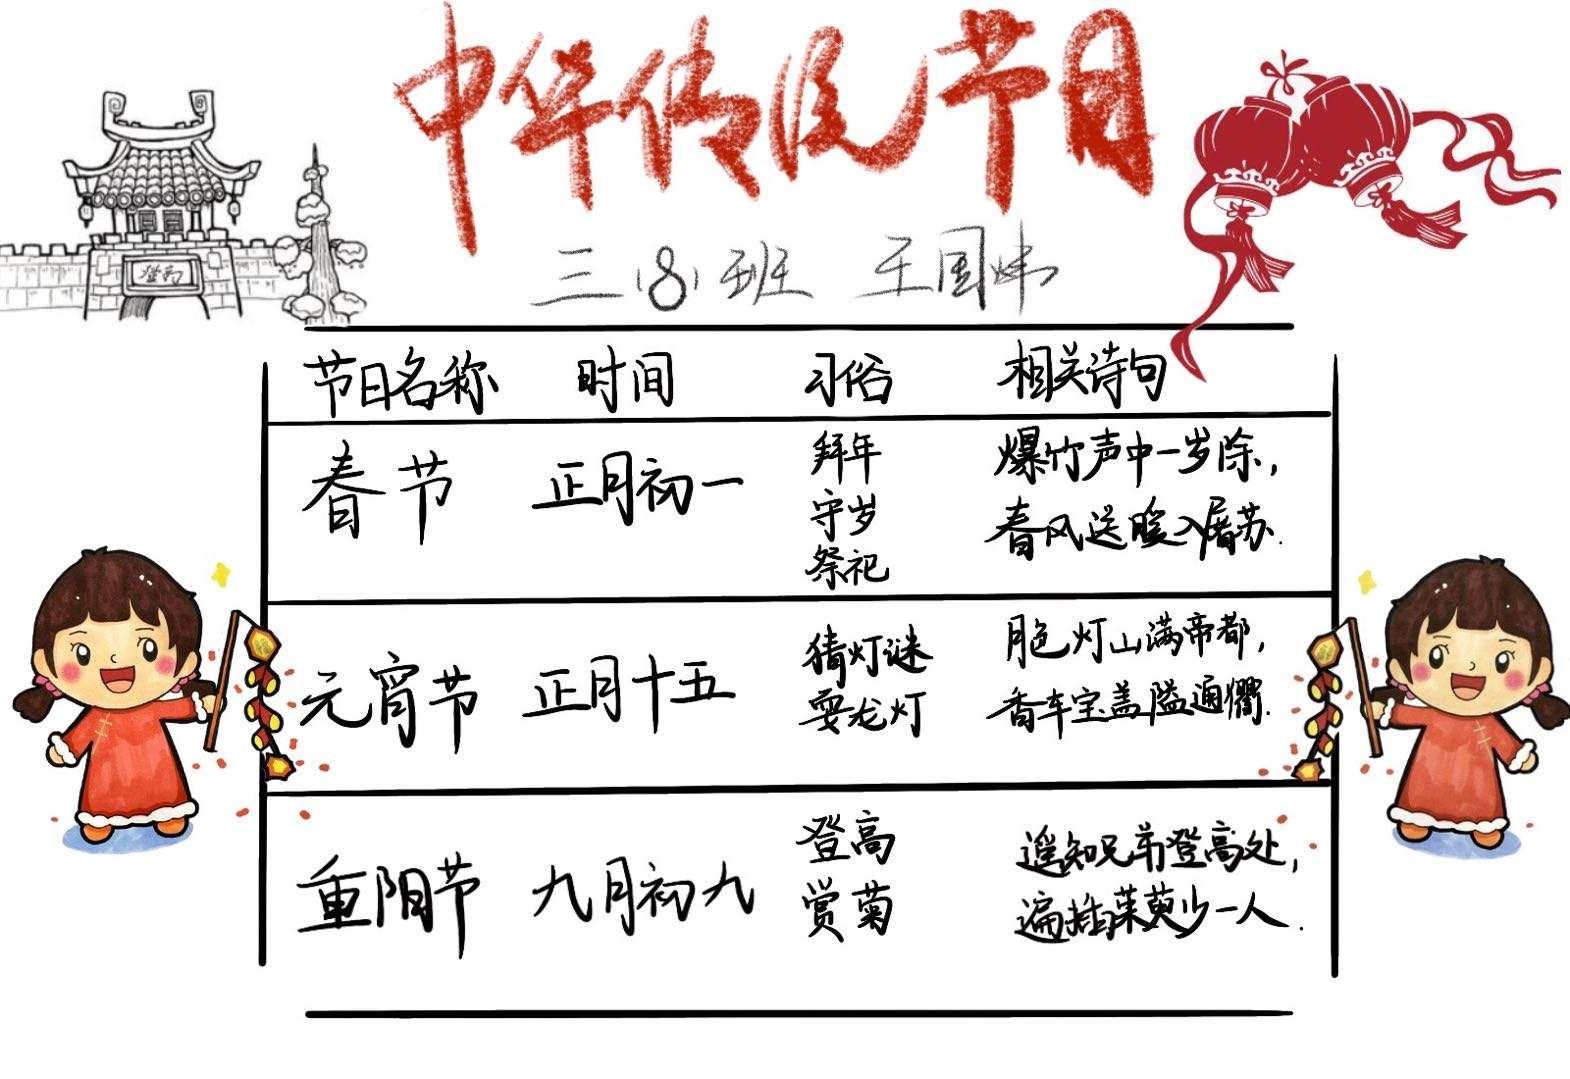 中华传统节日
三(8)班 王国炜
节日名称 时间 习俗 相关诗句
春节 正月初一
拜年
守岁
祭祀
爆竹声中一岁除,
春风送暖入屠苏.
元宵节 正月十五
猜灯谜
耍龙灯
月色灯山满帝都,
香车宝盖隘通衢.
重阳节 九月初九
登高
赏菊
遥知兄弟登高处,
遍插茱萸少一人.